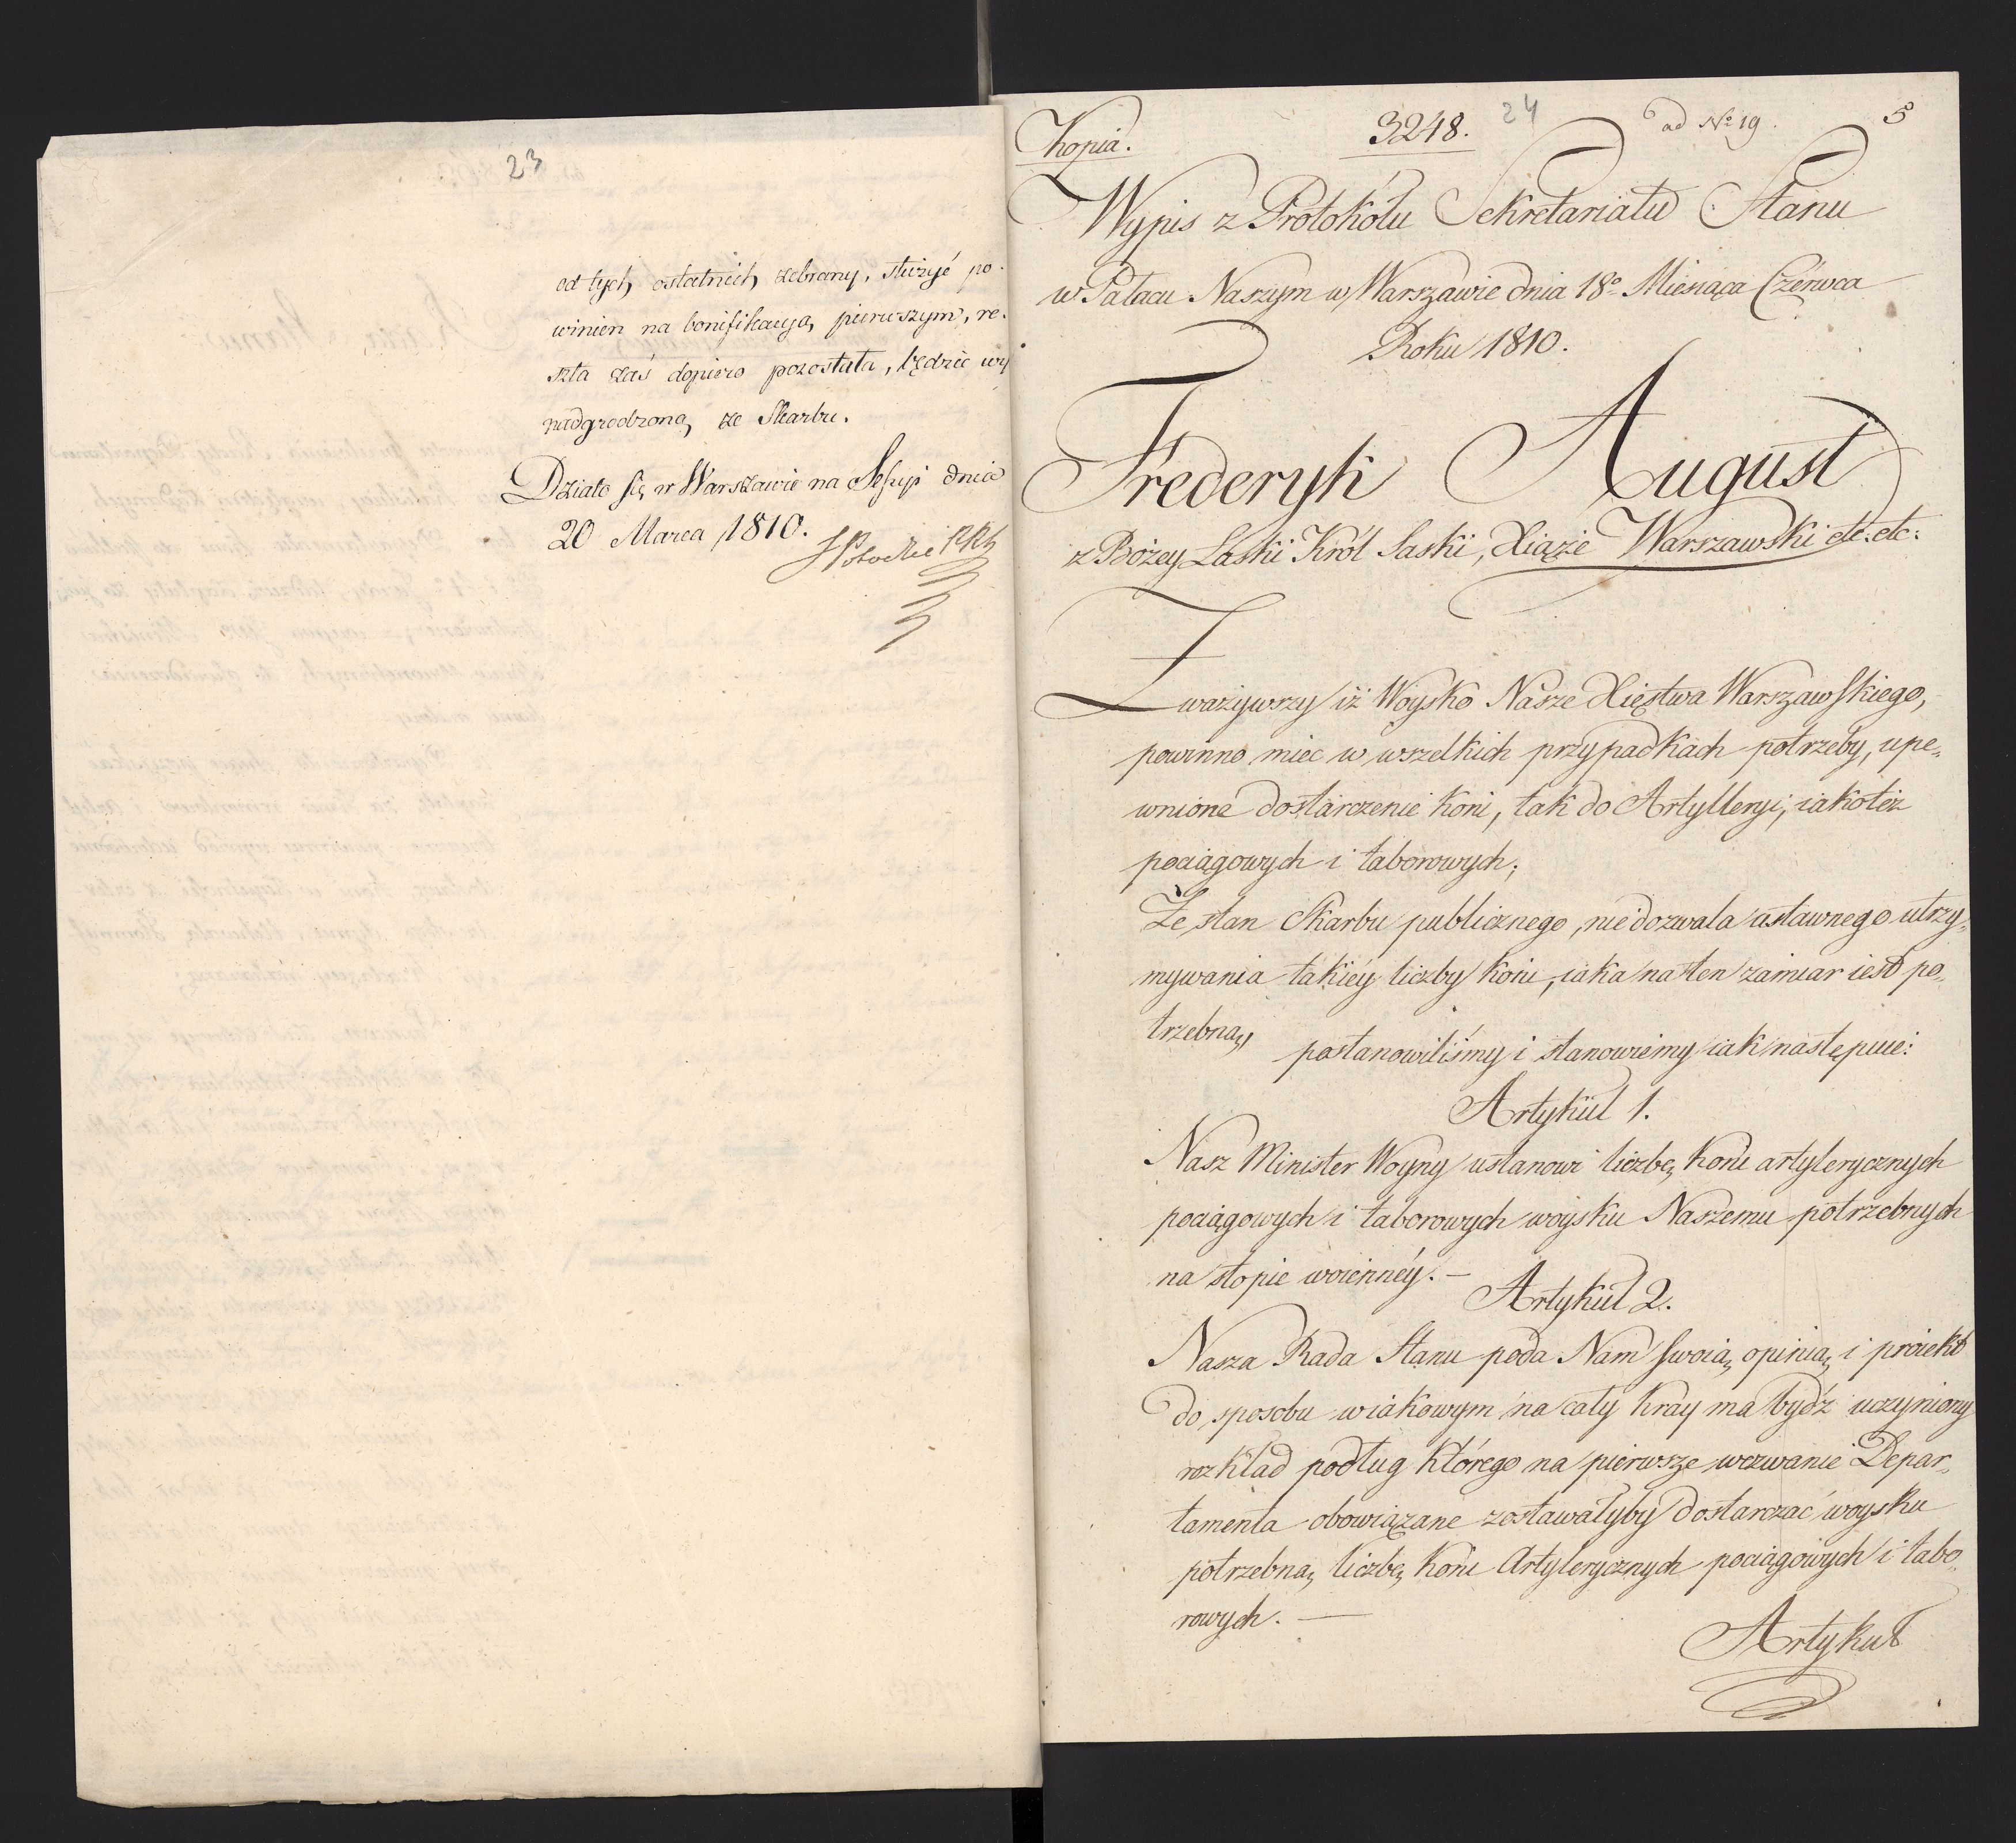 23
od tych ostatnich zebrany, służyć po-
winien na bonifikacyą pierwszym, re-
szta zaś dopiero pozostała, będzie wy
nadgrodzoną ze Skarbu.
Działo się w Warszawie na Sessyi dnia
20 Marca 1810.
Kopia. 3248. 24 ad No 19. 5
Wypis z Protokółu Sekretariatu Stanu
w Pałacu Naszym w Warszawie dnia 18o Miesiąca Czérwca
Roku 1810.
Frederyk August
z Bożey Łaski Król Saski, Xiąże Warszawski etc: etc:
Zważywszy iż Woysko Nasze Xięstwa Warszawskiego,
powinno miec w wszelkich przypadkach potrzeby, upe„
wnione dostarczenie koni, tak do Artylleryi, iakoteż
pociągowych i taborowych;
Że stan Skarbu publicznego, niedozwala ustawnego utrzy„
mywania takiéy liczby koni, iaka na ten zamiar iest po„
trzebną,
postanowiliśmy i stanowiemy iak następuie:
Artykuł 1.
Nasz Minister Woyny ustanowi liczbę koni artylerycznych
pociągowych i taborowych woysku Naszemu potrzebnych
na stopie woiennéy. —
Artykuł 2.
Nasza Rada Stanu poda Nam swoią opinią i proiekt
do sposobu w iakowym na cały kray ma bydź uczyniony
rozkład podług którego na pierwsze wezwanie Depar„
tamenta obowiązane zostawałyby dostarczać woysku
potrzebną liczbę koni Artylerycznych pociągowych i tabo„
rowych. —
Artykuł